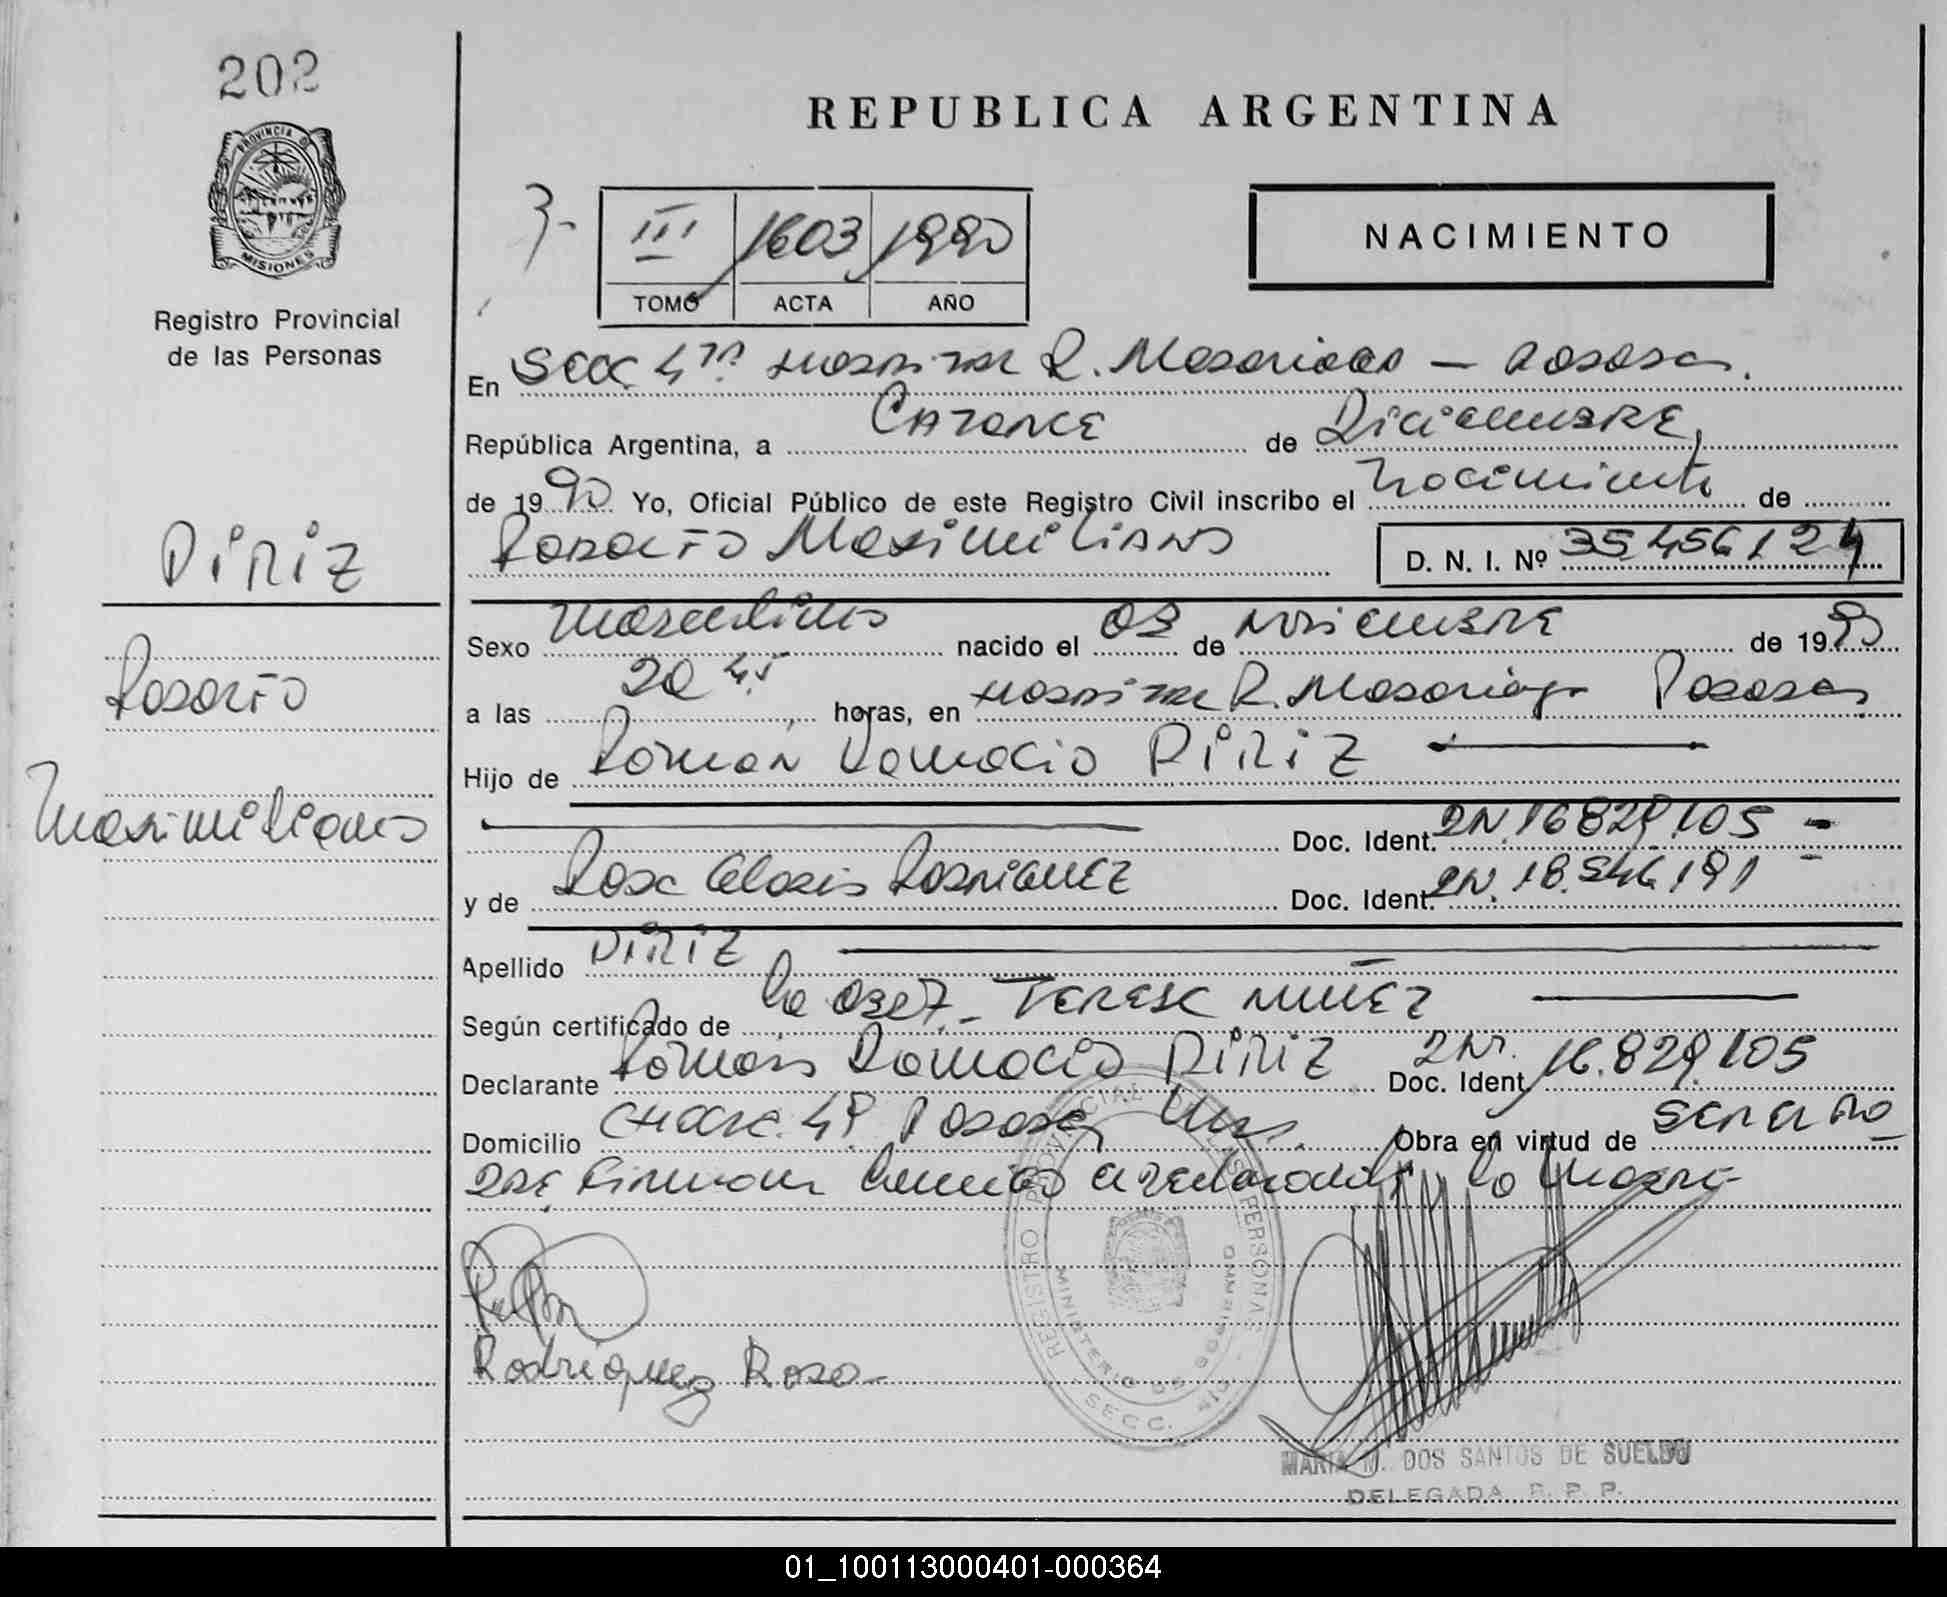 202
PROVINCIA D
MISIONES
Registro Provincial
de las Personas
REPUBLICA ARGENTINA
3-
III 1603 1990
TOMO ACTA AÑO
NACIMIENTO
En Secc. 4ta Hospital R. Madariaga - Posadas.
República Argentina, a Catorce de Diciembre,
de 1990 Yo, Oficial Público de este Registro Civil inscribo el nacimiento de
Rodolfo Maximiliano D. N. I. Nº 35456124
PiRiZ
Sexo masculino nacido el 03 de Noviembre de 1990
Rodolfo
a las 20 45 horas, en Hospital R. Madariaga Posadas
Hijo de Román Damacio PiRiZ
Maximiliano
Doc. Ident. DN. 16829.105 -
y de Rosa Rodriguez Doc. Ident. DN. 18.546.191 -
Apellido PiRiZ
Según certificado de la Obst. Teresa Nuñez
Declarante Román Damacio PiRiZ Doc. Ident. DNI. 16.829.105
Domicilio Chacra 4ª Posadas Obra en virtud de
firman la madre
Rodriguez Rosa-
REGISTRO PROVINCIAL DE LAS PERSONAS
MINISTERIO DE GOBIERNO
SECC. 4ta
MARIA M. DOS SANTOS DE SUELDO
DELEGADA R. P. P.
01_100113000401-000364